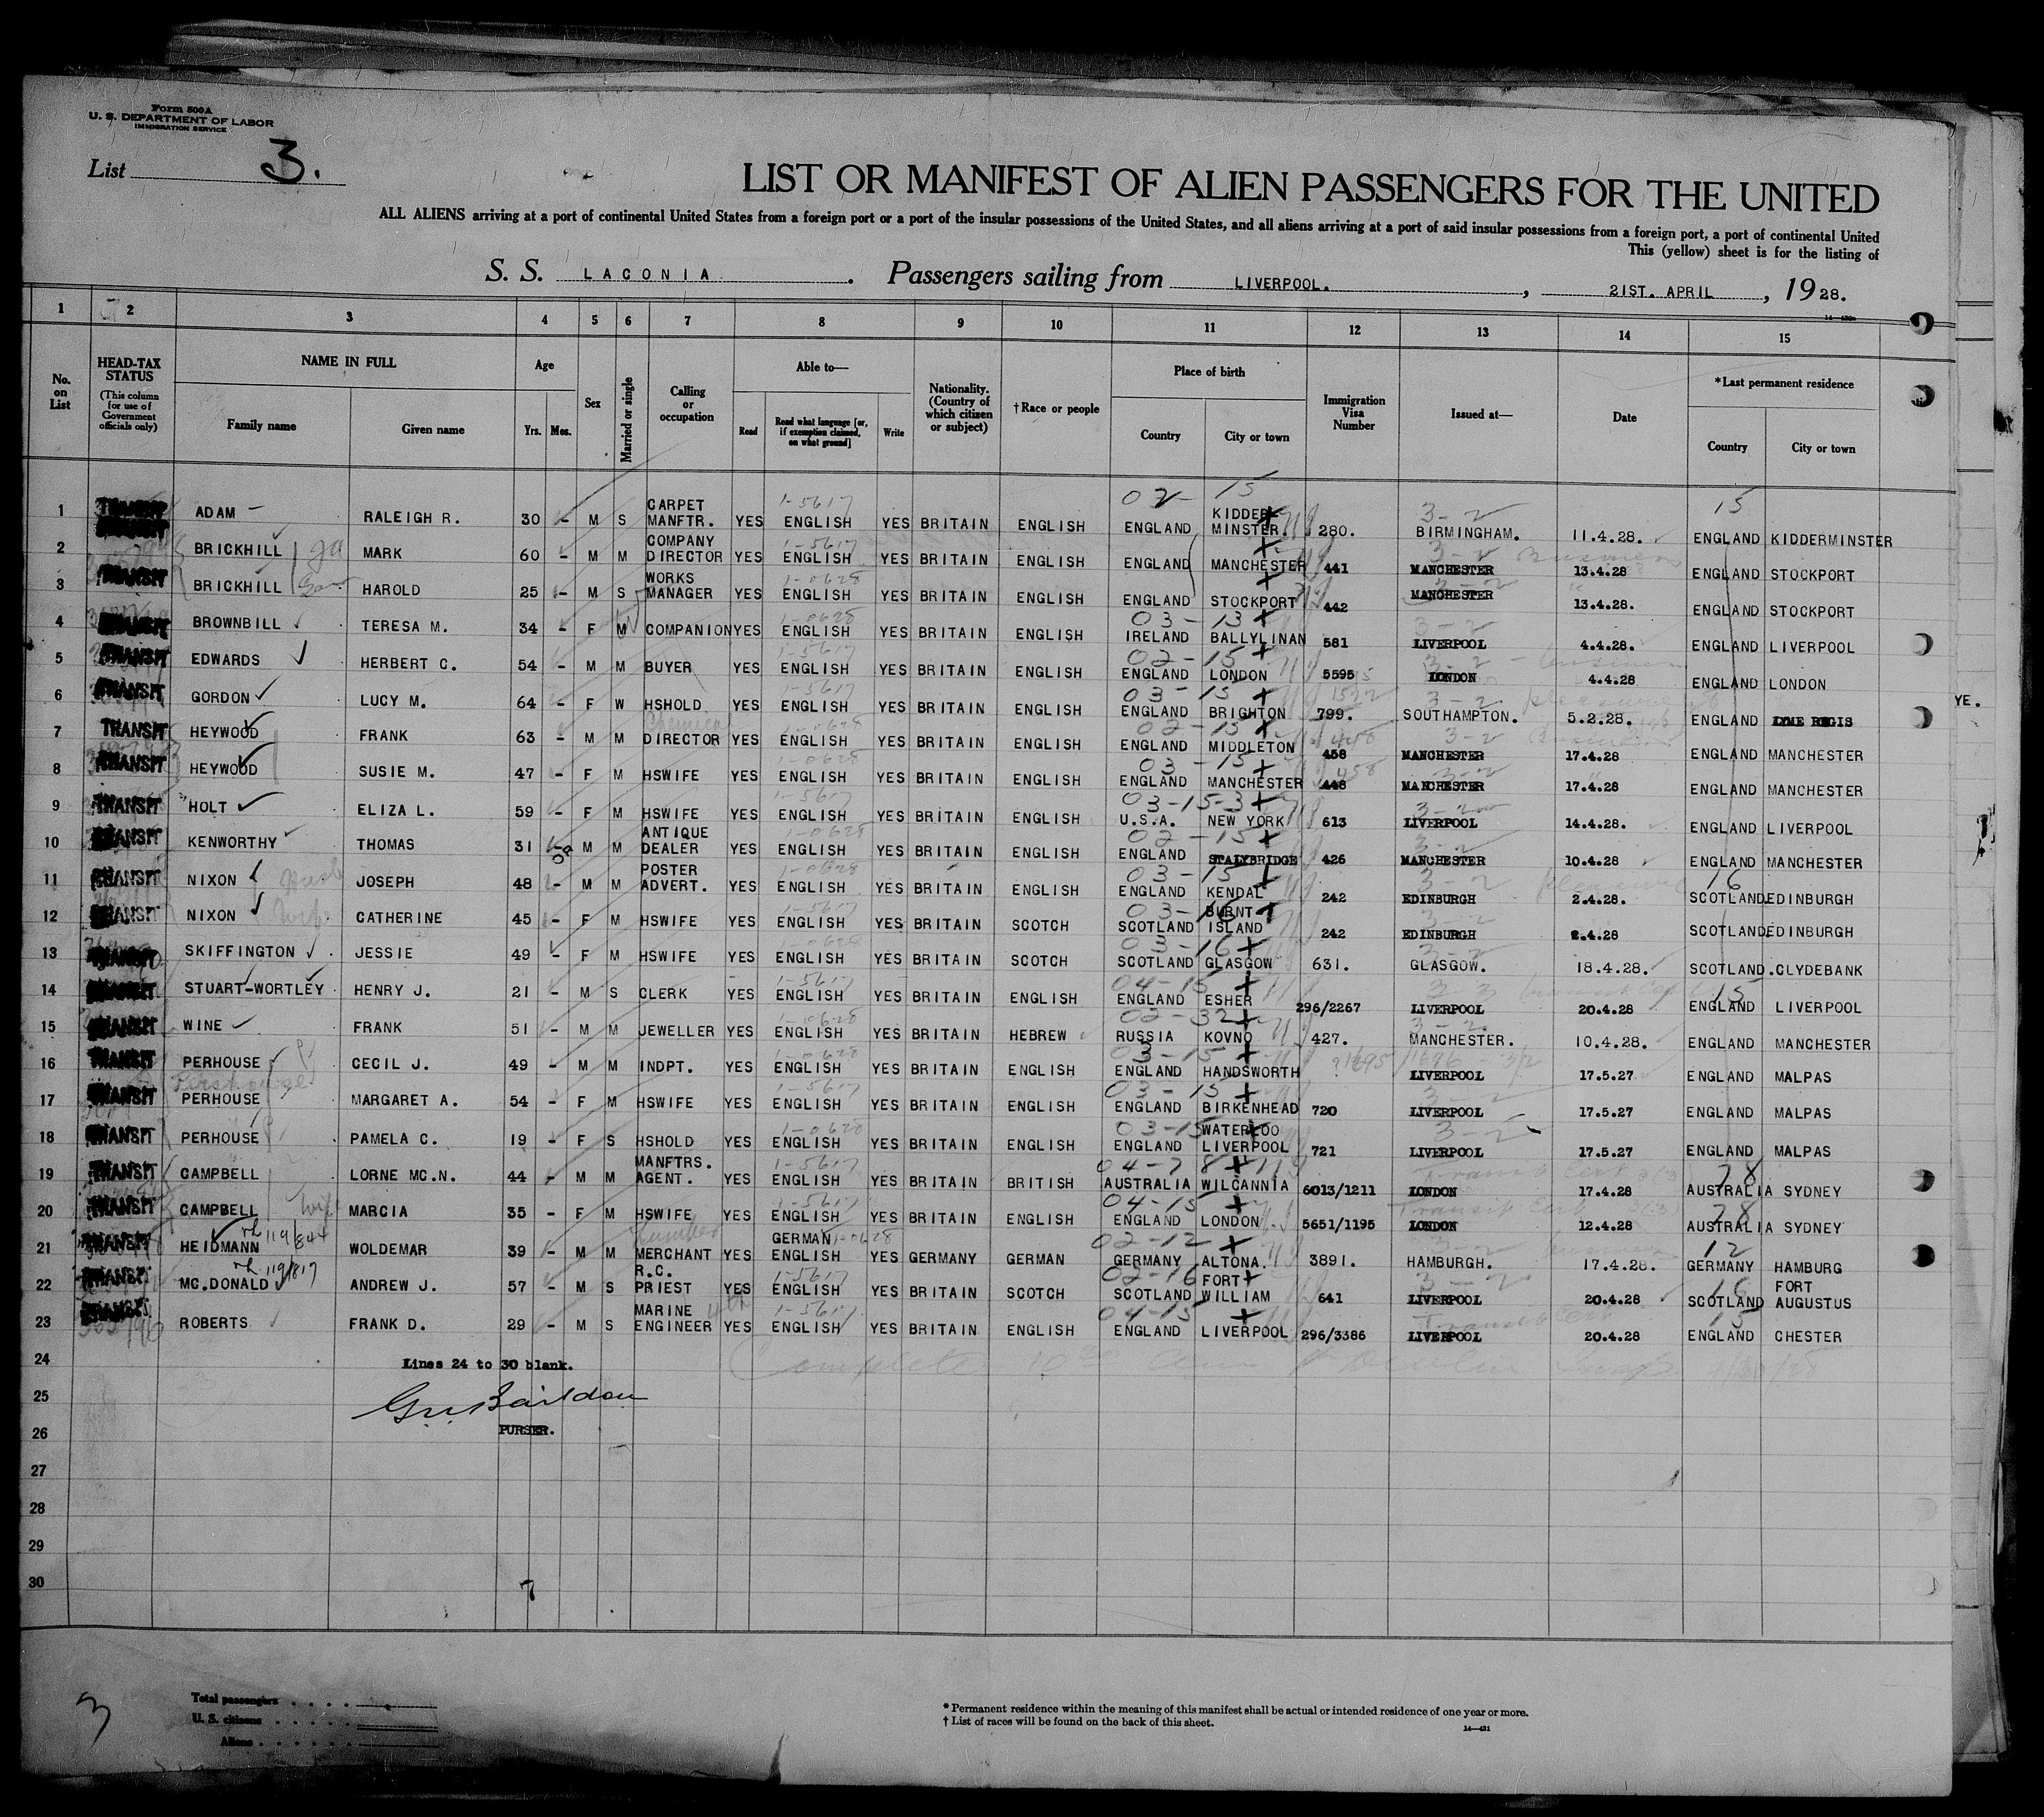 Form 500A
U. S. DEPARTMENT OF LABOR
IMMIGRATION SERVICE
List 3.
LIST OR MANIFEST OF ALIEN PASSENGERS FOR THE UNITED
ALL ALIENS arriving at a port of continental United States from a foreign port or a port of the insular possessions of the United States, and all aliens arriving at a port of said insular possessions from a foreign port, a port of continental United
This (yellow) sheet is for the listing of
S. S. LACONIA. Passengers sailing from LIVERPOOL. , 21ST. APRIL , 1928.
1 2 3 4 5 6 7 8 9 10 11 12 13 14 15
No. on List
HEAD-TAX STATUS (This column for use of Government officials only)
NAME IN FULL
Family name Given name
Age
Yrs. Mos.
Sex
Married or single
Calling or occupation
Able to—
Read Read what language [or, if exemption claimed, on what ground] Write
Nationality. (Country of which citizen or subject)
†Race or people
Place of birth
Country City or town
Immigration Visa Number
Issued at—
Date
*Last permanent residence
Country City or town
1 TRANSIT ADAM RALEIGH R. 30 - M S CARPET MANFTR. YES ENGLISH YES BRITAIN ENGLISH ENGLAND KIDDER- MINSTER. 280. BIRMINGHAM. 11.4.28. ENGLAND KIDDERMINSTER
2 BRICKHILL MARK 60 - M M COMPANY DIRECTOR YES ENGLISH YES BRITAIN ENGLISH ENGLAND MANCHESTER 441 MANCHESTER 13.4.28 ENGLAND STOCKPORT
3 TRANSIT BRICKHILL HAROLD 25 - M S WORKS MANAGER YES ENGLISH YES BRITAIN ENGLISH ENGLAND STOCKPORT 442 MANCHESTER 13.4.28. ENGLAND STOCKPORT
4 TRANSIT BROWNBILL TERESA M. 34 - F M COMPANION YES ENGLISH YES BRITAIN ENGLISH IRELAND BALLYLINAN 581 LIVERPOOL 4.4.28. ENGLAND LIVERPOOL
5 TRANSIT EDWARDS HERBERT C. 54 - M M BUYER YES ENGLISH YES BRITAIN ENGLISH ENGLAND LONDON 5595 LONDON 4.4.28 ENGLAND LONDON
6 TRANSIT GORDON LUCY M. 64 - F W HSHOLD YES ENGLISH YES BRITAIN ENGLISH ENGLAND BRIGHTON 799. SOUTHAMPTON. 5.2.28. ENGLAND LYME REGIS
7 TRANSIT HEYWOOD FRANK 63 - M M DIRECTOR YES ENGLISH YES BRITAIN ENGLISH ENGLAND MIDDLETON 458 MANCHESTER 17.4.28 ENGLAND MANCHESTER
8 TRANSIT HEYWOOD SUSIE M. 47 - F M HSWIFE YES ENGLISH YES BRITAIN ENGLISH ENGLAND MANCHESTER 448 MANCHESTER 17.4.28 ENGLAND MANCHESTER
9 TRANSIT HOLT ELIZA L. 59 - F M HSWIFE YES ENGLISH YES BRITAIN ENGLISH U.S.A. NEW YORK 613 LIVERPOOL 14.4.28. ENGLAND LIVERPOOL
10 TRANSIT KENWORTHY THOMAS 31 - M M ANTIQUE DEALER YES ENGLISH YES BRITAIN ENGLISH ENGLAND STALYBRIDGE 426 MANCHESTER 10.4.28 ENGLAND MANCHESTER
11 TRANSIT NIXON JOSEPH 48 - M M POSTER ADVERT. YES ENGLISH YES BRITAIN ENGLISH ENGLAND KENDAL 242 EDINBURGH 2.4.28. SCOTLAND EDINBURGH
12 TRANSIT NIXON CATHERINE 45 - F M HSWIFE YES ENGLISH YES BRITAIN SCOTCH SCOTLAND BURNT ISLAND 242 EDINBURGH 2.4.28 SCOTLAND EDINBURGH
13 TRANSIT SKIFFINGTON JESSIE 49 - F M HSWIFE YES ENGLISH YES BRITAIN SCOTCH SCOTLAND GLASGOW 631. GLASGOW. 18.4.28. SCOTLAND. CLYDEBANK
14 TRANSIT STUART-WORTLEY HENRY J. 21 - M S CLERK YES ENGLISH YES BRITAIN ENGLISH ENGLAND ESHER 296/2267 LIVERPOOL 20.4.28 ENGLAND LIVERPOOL
15 TRANSIT WINE FRANK 51 - M M JEWELLER YES ENGLISH YES BRITAIN HEBREW RUSSIA KOVNO 427. MANCHESTER. 10.4.28. ENGLAND MANCHESTER
16 TRANSIT PERHOUSE CECIL J. 49 - M M INDPT. YES ENGLISH YES BRITAIN ENGLISH ENGLAND HANDSWORTH LIVERPOOL 17.5.27 ENGLAND MALPAS
17 TRANSIT Pershouse PERHOUSE MARGARET A. 54 - F M HSWIFE YES ENGLISH YES BRITAIN ENGLISH ENGLAND BIRKENHEAD 720 LIVERPOOL 17.5.27 ENGLAND MALPAS
18 TRANSIT PERHOUSE PAMELA C. 19 - F S HSHOLD YES ENGLISH YES BRITAIN ENGLISH ENGLAND WATERLOO LIVERPOOL 721 LIVERPOOL 17.5.27 ENGLAND MALPAS
19 TRANSIT CAMPBELL LORNE MC.N. 44 - M M MANFTRS. AGENT. YES ENGLISH YES BRITAIN BRITISH AUSTRALIA WILCANNIA 6013/1211 LONDON 17.4.28 AUSTRALIA SYDNEY
20 TRANSIT CAMPBELL MARCIA 35 - F M HSWIFE YES ENGLISH YES BRITAIN ENGLISH ENGLAND LONDON 5651/1195 LONDON 12.4.28 AUSTRALIA SYDNEY
21 TRANSIT HEIDMANN WOLDEMAR 39 - M M MERCHANT YES GERMAN ENGLISH YES GERMANY GERMAN GERMANY ALTONA. 3891. HAMBURGH. 17.4.28. GERMANY HAMBURG
22 TRANSIT MC.DONALD ANDREW J. 57 - M S R.C. PRIEST YES ENGLISH YES BRITAIN SCOTCH SCOTLAND FORT WILLIAM 641 LIVERPOOL 20.4.28 SCOTLAND FORT AUGUSTUS
23 TRANSIT ROBERTS FRANK D. 29 - M S MARINE ENGINEER YES ENGLISH YES BRITAIN ENGLISH ENGLAND LIVERPOOL 296/3386 LIVERPOOL 20.4.28 ENGLAND CHESTER
24 Lines 24 to 30 blank.
25
26 PURSER.
27
28
29
30
3
Total passengers
U. S. citizens
Aliens
* Permanent residence within the meaning of this manifest shall be actual or intended residence of one year or more.
† List of races will be found on the back of this sheet.
14—431
YE.